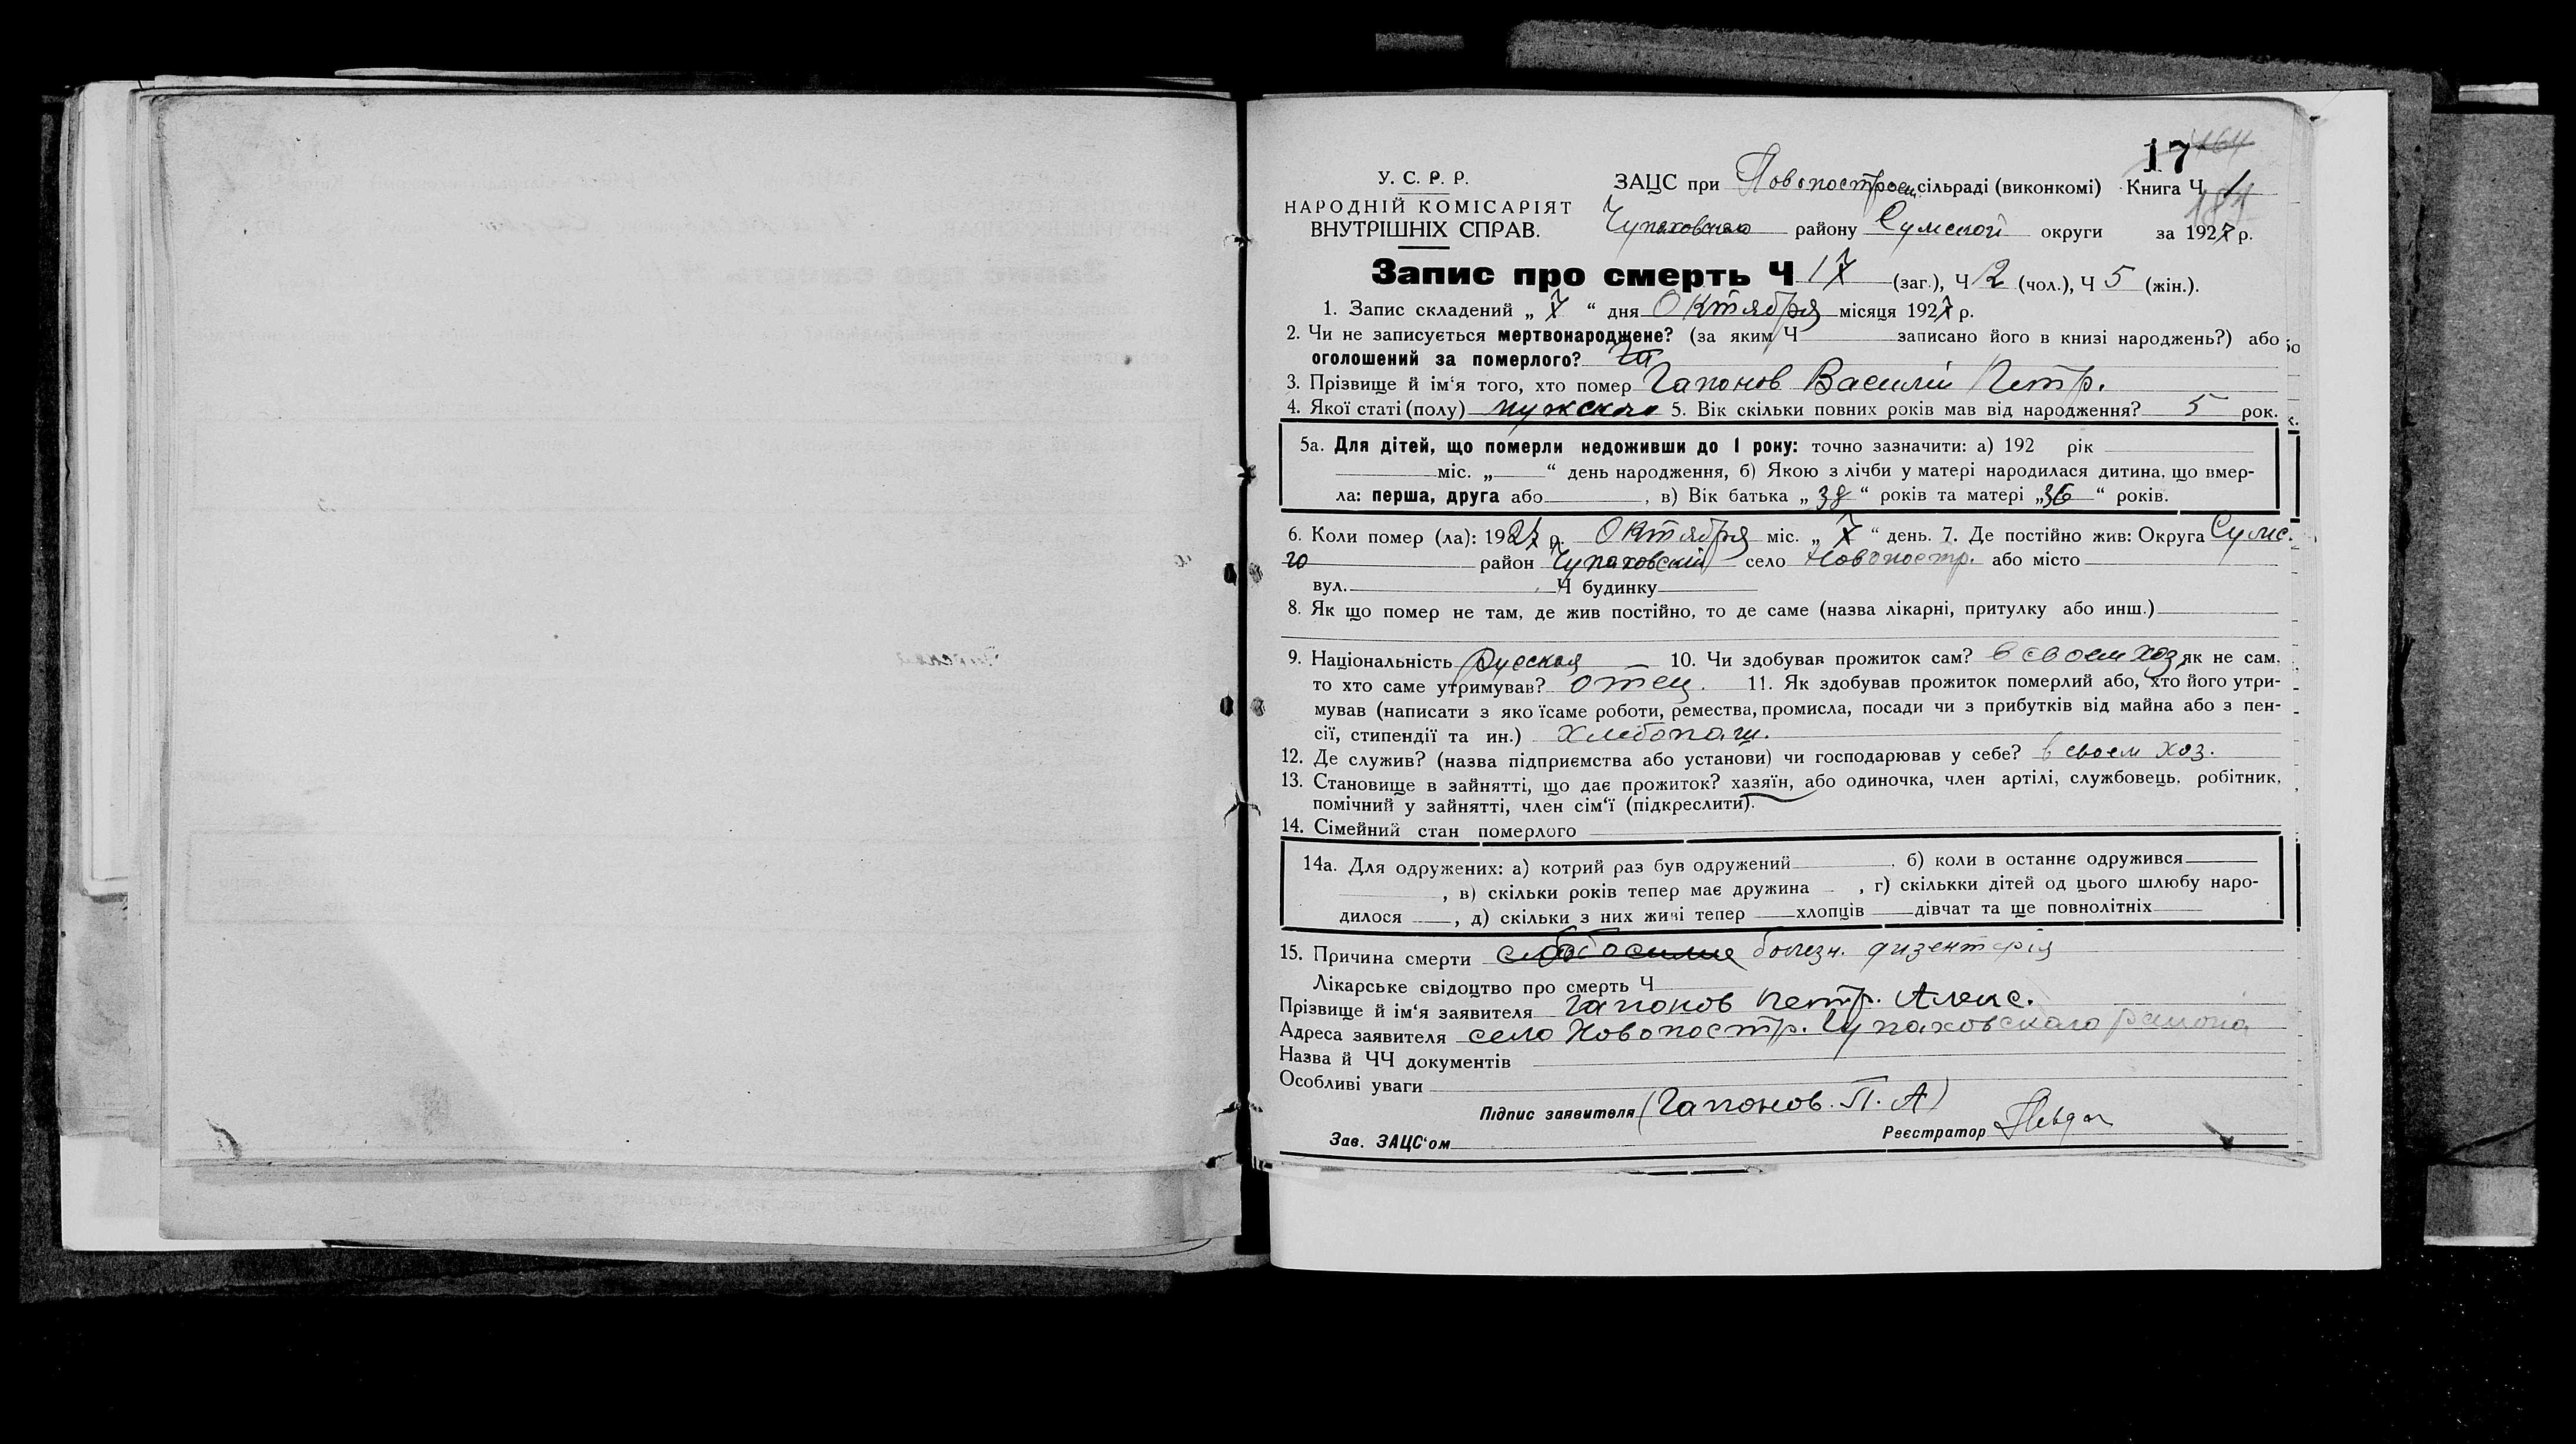 17 164
У. С. Р. Р.
НАРОДНІЙ КОМІСАРІЯТ
ВНУТРІШНІХ СПРАВ.
ЗАЦС при Новопостроен. сільраді (виконкомі) Книга Ч 1
Чупаховского району Сумской округи за 1927 р.
Запис про смерть Ч 17 (заг.), Ч 12 (чол.), Ч 5 (жін.).
1. Запис складений „ 7 “ дня Октября місяця 1927 р.
2. Чи не записується мертвонароджене? (за яким Ч записано його в книзі народжень?) або
оголошений за померлого?
3. Прізвище й ім‘я того, хто помер Гапонов Василий Петр.
4. Якої статі (полу) мужского 5. Вік скільки повних років мав від народження? 5 рок.
5а. Для дітей, що померли недоживши до 1 року: точно зазначити: а) 192 рік
міс. „ “ день народження, б) Якою з лічби у матері народилася дитина, що вмер-
ла: перша, друга або , в) Вік батька „ 38 “ років та матері „36 “ років.
6. Коли помер (ла): 1927 р. Октября міс. „ 7 “ день. 7. Де постійно жив: Округа Сумс.
го район Чупаховский село Новопостр. або місто
вул. Ч будинку
8. Як що помер не там, де жив постійно, то де саме (назва лікарні, притулку або инш.)
9. Національність Русская 10. Чи здобував прожиток сам? в своем хоз як не сам,
то хто саме утримував? отец. 11. Як здобував прожиток померлий або, хто його утри-
мував (написати з яко їсаме роботи, ремества, промисла, посади чи з прибутків від майна або з пен-
сії, стипендії та ин.) хлебопаш.
12. Де служив? (назва підприємства або установи) чи господарював у себе? в своем хоз.
13. Становище в зайнятті, що дає прожиток? хазяїн, або одиночка, член артілі, службовець, робітник,
помічний у зайнятті, член сім‘ї (підкреслити).
14. Сімейний стан померлого
14а. Для одружених: а) котрий раз був одружений , б) коли в останнє одружився
, в) скільки років тепер має дружина , г) скількки дітей од цього шлюбу наро-
дилося , д) скільки з них живі тепер хлопців дівчат та ще повнолітніх
15. Причина смерти болезн. дизентерія
Лікарське свідоцтво про смерть Ч
Прізвище й ім‘я заявителя Гапонов Петр. Алекс.
Адреса заявителя село Новопостр. Чупаховскаго района
Назва й ЧЧ документів
Особливі уваги
Підпис заявителя (Гапонов. П. А)
Зав. ЗАЦС‘ом Реєстратор